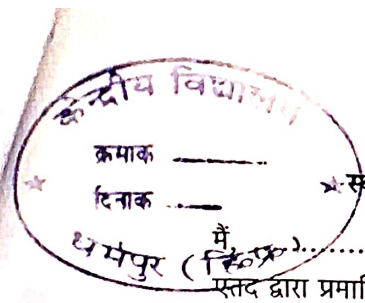 केन्द्रीय विद्यालय
क्रमांक
दिनाक
स
धर्मपुर (हि०प्र०)
मैं,
एतद द्वारा प्रमाि